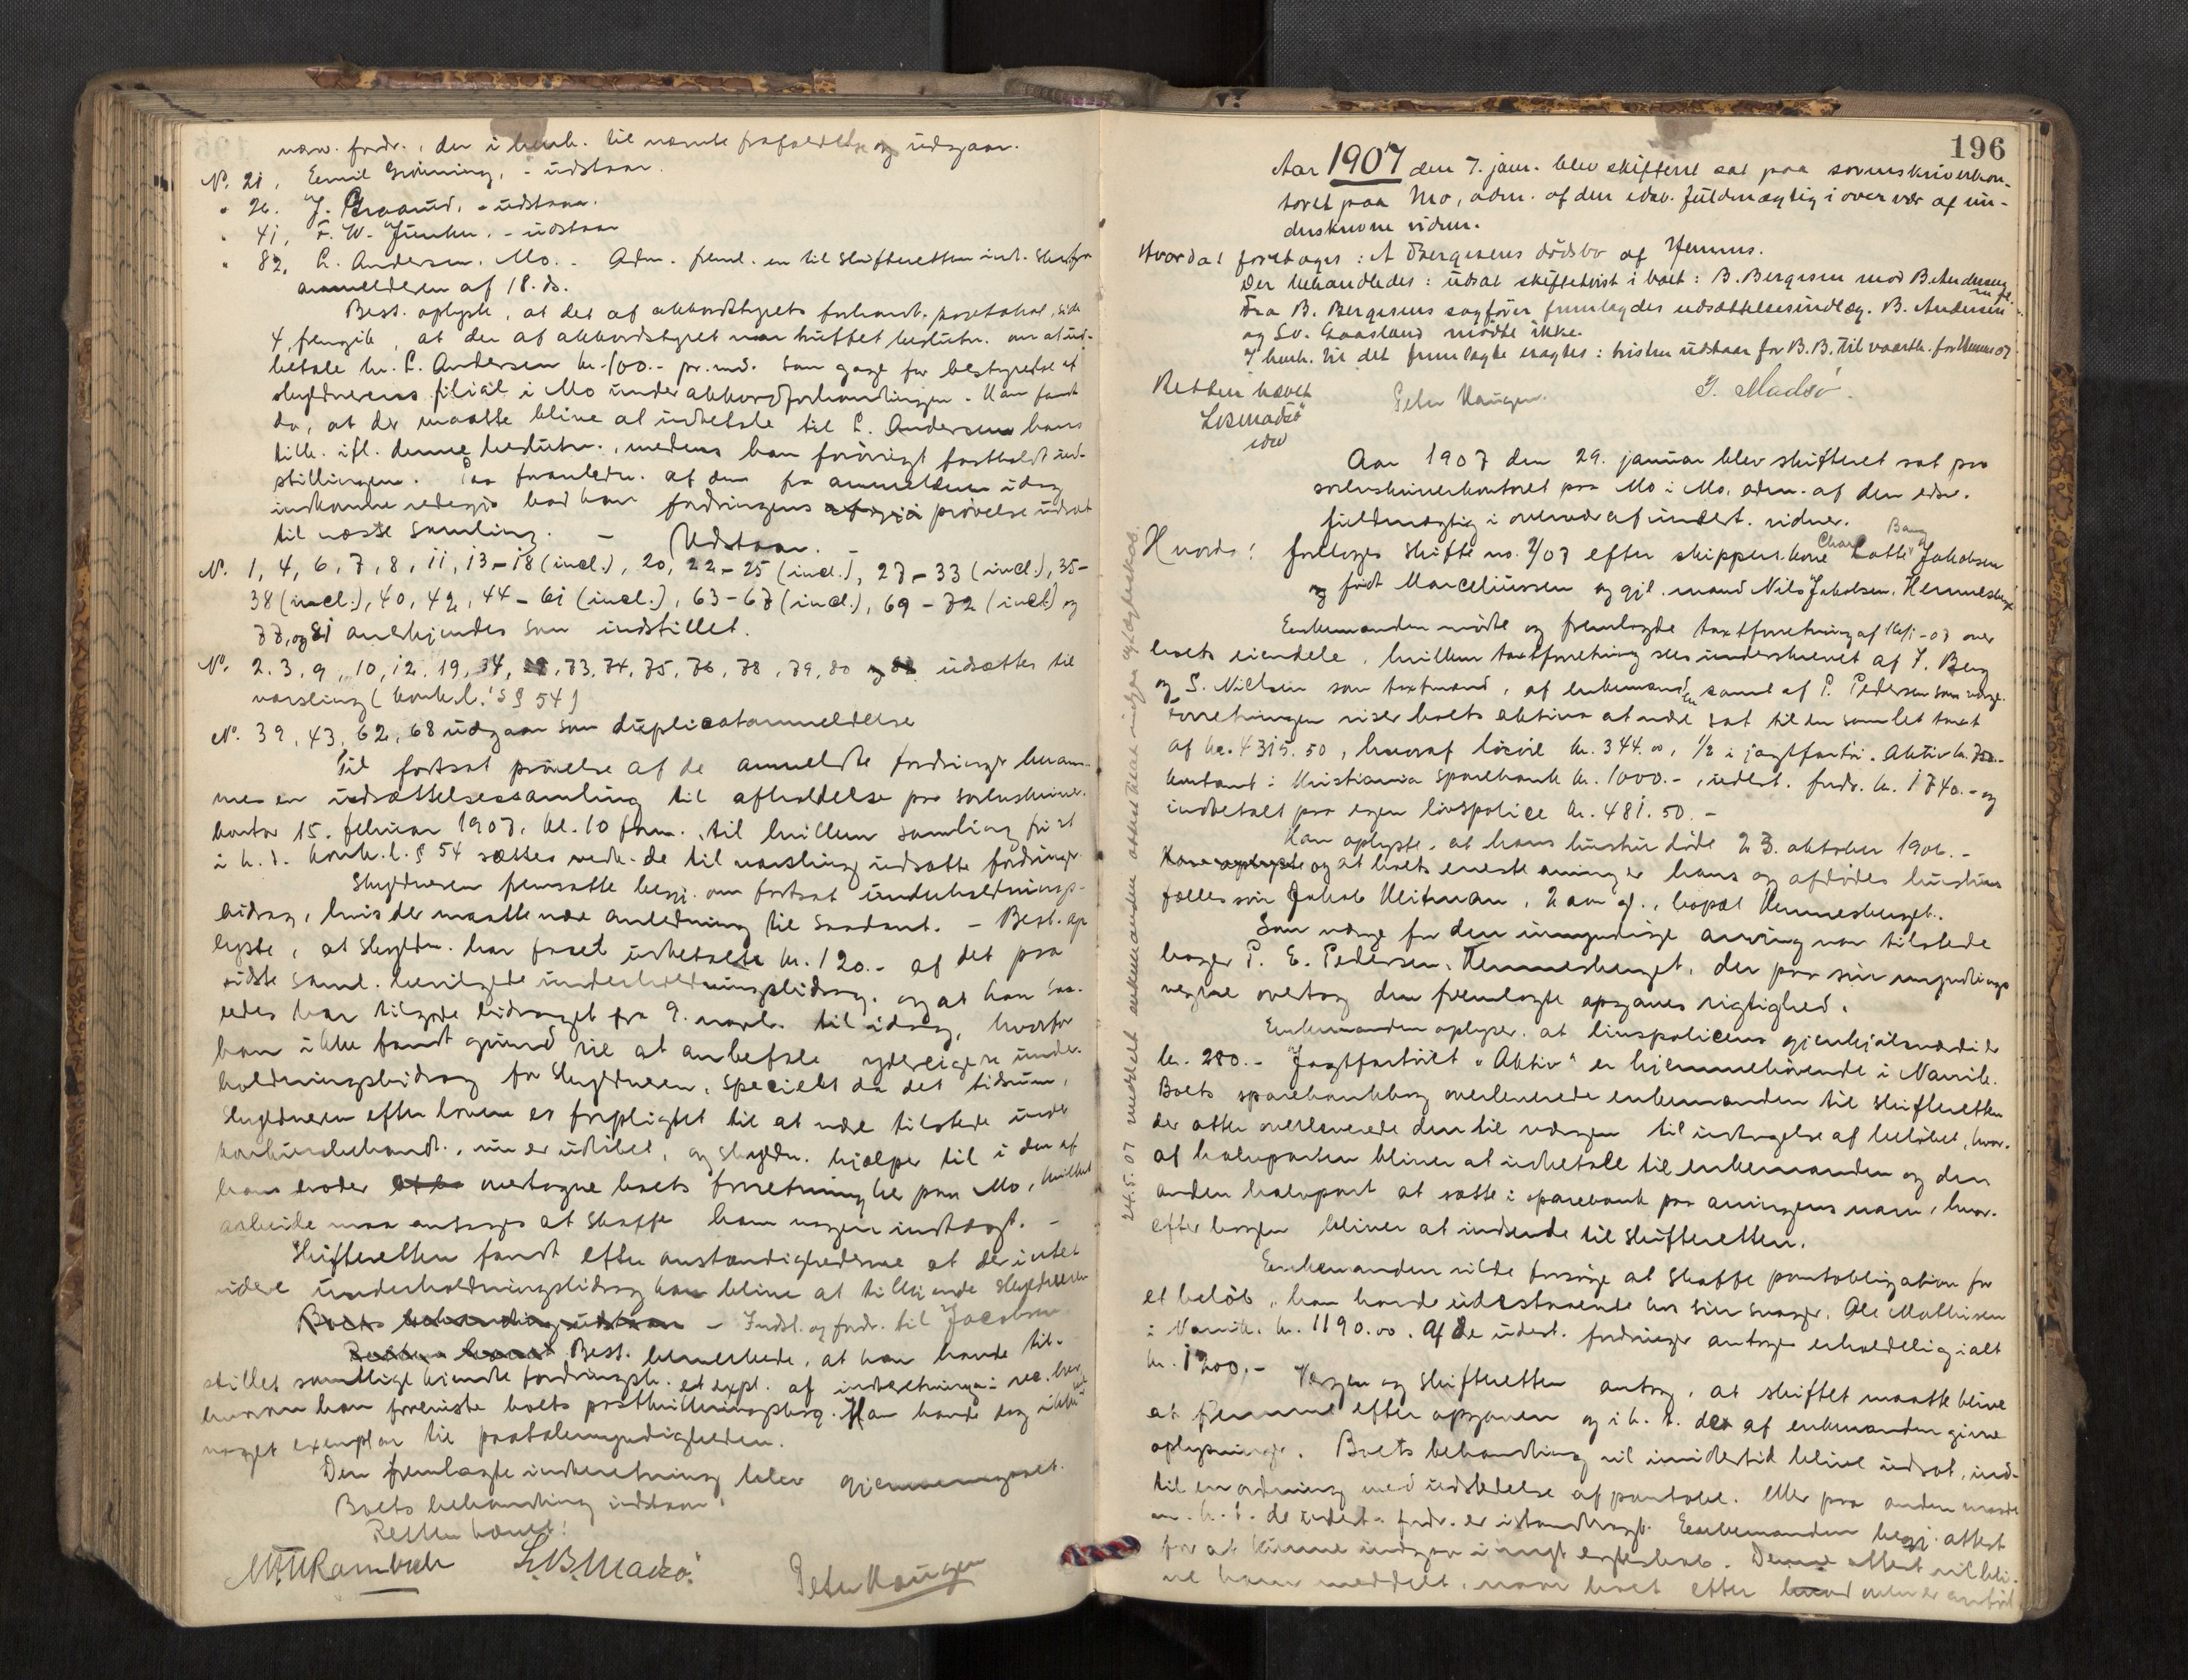 nærv. fordr., der i henh. til nævnte frafaldelse og udgaar.
N. 21, Emil Grönning, - udstaar.
" 26. J. - udstaar.
" 41, F. W. - udstaar
" 82, L. Andersen. Mo. - Adm. freml. en til skifteretten indk. skr. fra
anmelderen af 18. ds.
Best. oplyste, at det af akkordstyrets forhandl. protokol, side
4, fremgik, at der af akkordstyret var truffet beslutn. om at ud-
betale hr. L. Andersen kr. 100.- pr. md. som gage for bestyrelse af
skyldnerens filial i Mo under akkordforhandlingen. Han fandt
da, at der maatte blive at udbetale til L. Andersen hans
tilk. ifl. denne beslutn., medens han forövrigt fastholdt ind-
stillingen. Paa foranledn. af den fra anmelderen idag
indkomne bad han fordringens prövelse udsat
til næste samling. - Udstaar. -
N. 1, 4, 6, 7, 8, 11, 13-18 (incl.), 20, 22-25 (incl.), 27-33 (incl.), 35-
38 (incl.), 40, 42, 44-61 (incl.), 63-67 (incl.), 69-72 (incl.) og
77, og 81 anerkjendes som indstillet.
N. 2. 3, 9, 10, 12, 19, 34, 73, 74, 75, 76, 78, 79, 80 udsættes til
varsling (konk.l.'s § 54)
N. 39, 43, 62, 68 udgaar som duplicatanmeldelse
Til fortsat prövelse af de anmeldte fordringer beram-
mes en udsættelsessamling til afholdelse paa sorenskriver-
kontor 15. februar 1907, kl. 10 form., til hvilken samling frist
i h. t. konk.l. § 54 sættes vedk. de til varsling udsatte fordringer
Skyldneren fremsatte begj. om fortsat underholdnings-
bidrag, hvis der maatte være anledning til saadant. - Best. op-
lyste, at skyldn. har faaet udbetalt kr. 120.- af det paa
sidste saml. bevilgede underholdningsbidrag, og at han saa-
ledes har tilgode bidraget fra 9. novb. til idag, hvorfor
han ikke fandt grund til at anbefale yderligere under-
holdningsbidrag for skyldneren, specielt da det tidsrum,
skyldneren efter loven er forpligtet til at være tilstede under
konkursbehandl., nu er udlöbet, og skyldn. hjælper til i den af
hans broder overtagne boets forretning her paa Mo, hvilket
arbeide maa antages at skaffe ham nogen indtægt. -
Skifteretten fandt efter omstændighederne at der intet
videre underholdningsbidrag kan blive at tilkjende skyldneren
Boets behandling udstaar - Indst. og fordr. til Jacobsen
Retten hævet Best. bemerkede, at han havde til-
stillet samtlige kjendte fordringsh. et expl. af indberetningen i rec. brev
hvorom han foreviste boets postkvitteringsbog. Han havde dog ikke
noget exemplar til paatalemyndigheden.
Den fremlagte indberetning blev gjennemgaaet.
Boets behandling udstaar.
Retten hævet!
L.B. Madsö. Peter Haugen

196
Aar 1907 den 7. jan. blev skifteret sat paa sorenskriverkon-
toret paa Mo, adm. af den edsv. fuldmægtig i overvær af un-
derskrevne vidner.
Hvorda! foretoges: A Bergesens dödsbo af Hemnes.
Der behandledes: udsat skiftetvist i boet: B. Bergesen mod B. Andersen m. fl.
Fra B. Bergesens sagförer fremlagdes udsættelsesindlæg. B. Andersen
og Sv. Gaasland mödte ikke.
I henh. til det fremlagte eragtes: tvisten udstaar for B.B. til vaarth. for Hemnes 07.
Retten hævet Peter Haugen. J. Madsö.
LBMadsö
edsv
Aar 1907 den 29. januar blev skifteret sat paa
sorenskriverkontoret paa Mo i Mo, adm. af den edsv.
fuldmægtig i overvær af undert. vidner.
Hvorda! foretoges skifte no. 2/07 efter skipperkone Lotte Jakobsen
född Marceliussen og gjl. mand Nils Jakobsen, Hemnesberget
Enkemanden mödte og fremlagde taxtforretning af 16/1-07 over
boets eiendele, hvilken taxtforretning sees underskrevet af J. Berg
og S. Nielsen som taxtmænd, af enkemanden samt af P. Pedersen som værge.
Forretningen viser boets aktiva at være sat til en samlet taxt
af kr. 4315.50, hvoraf lösöre kr. 344.00, 1/2 i jagtfartöi. Aktiv kr. 750.-
kontant i Kristiania sparebank kr. 1000.-, udest. fordr. kr. 1740.- og
indbetalt paa egen livspolice kr. 481.50. -
Han oplyste, at hans hustru döde 23. oktober 1906. -
Han oplyste og at boets eneste arving er hans og afdödes hustrus
fælles sön Jakob Heitman, 2 aar gl., bopæl Hemnesberget.
Som værge for den umyndige arving var tilstede
bager P. E. Pedersen, Hemnesberget, der paa sin myndlings
vegne den fremlagte opgaves rigtighed.
Enkemanden oplyser, at livspolicens gjenkjöbsværdi er
kr. 280.- Jagtfartöiet "Aktiv" er hjemmehörende i Narvik.
Boets sparebankbog overleverede enkemanden til skifteretten
der atter overleverede den til værgen til udtagelse af belöbet, hvor-
af halvparten bliver at udbetale til enkemanden og den
anden halvpart at sætte i sparebank paa arvingens navn, hvor-
efter bogen bliver at indsende til skifteretten.
Enkemanden vilde forsöge at skaffe pantobligation for
et belöb, han havde udestaaende hos sin svoger, Ole Mathisen
i Narvik, kr. 1190.00. Af de udest. fordringer antages erholdelig ialt
kr. 1200.- Værgen og skifteretten antog, at skiftet maatte blive
at fremme efter opgaven og i h. t. de af enkemanden givne
oplysninger. Boets behandling vil imidlertid blive udsat, ind-
til en ordning med udstedelse af pantobl. eller paa anden maade
m. h. t. de udest. fordr. er istandbragt. Enkemanden begj. attest
for at kunne indgaa i nyt egteskab. Denne attest vil bli-
ve ham meddelt, naar boet efter hvad ovenfor er anfört
24.5.07 meddelt enkemanden attest til at indgaa nyt egteskab.